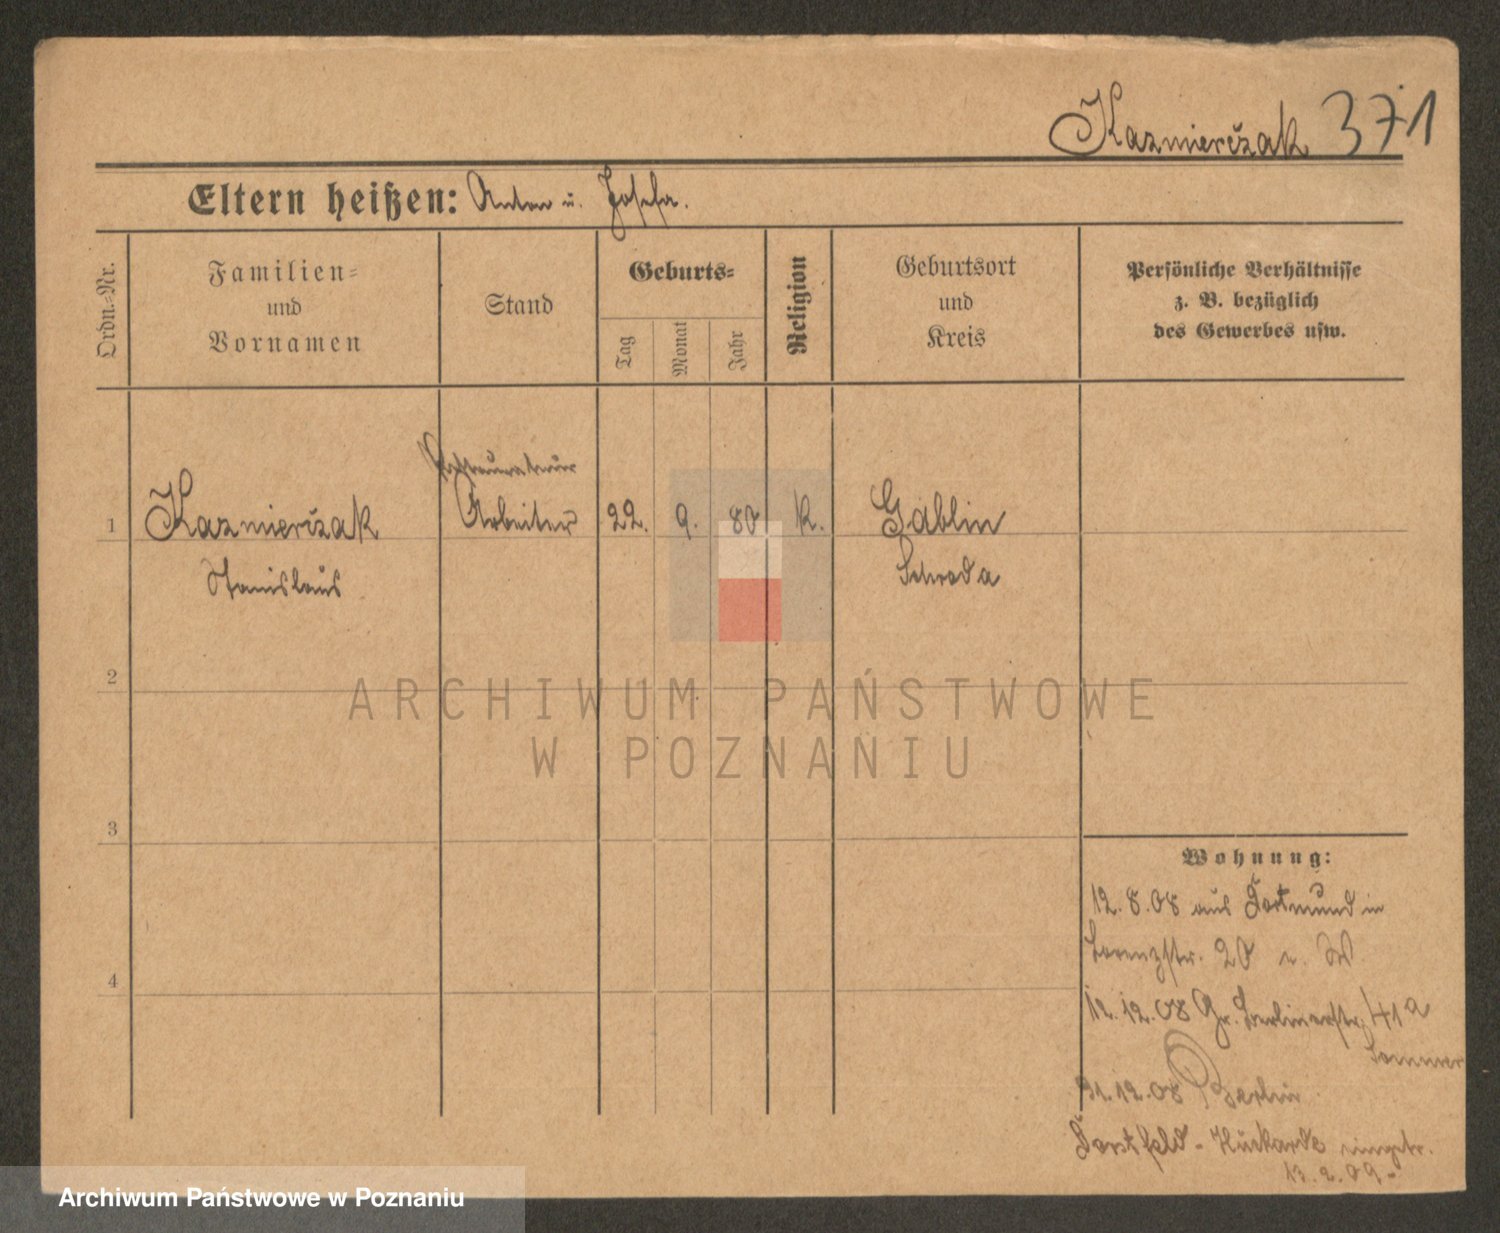 Kazmierczak 371
Eltern heißen: Anton u. Josefa.
Ordn.-Nr.
Familien-
und
Vornamen
Stand
Geburts-
Tag
Monat
Jahr
Religion
Geburtsort
und
Kreis
Persönliche Verhältnisse
z. B. bezüglich
des Gewerbes usw.
Restaurateur
1 Kazmierczak Arbeiter 22. 9. 80 k. Gablin
Stanislaus Schroda
2
ARCHIWUM PAŃSTWOWE
W POZNANIU
3
Wohnung:
12.8.08 aus Dortmund in
Lorenzstr. 20 W.
4
12.12.08 Gr. Berlinerstr. 41a
Sommer
31.12.08 Berlin
Dorstfeld - Huckarde
13.2.09.
Archiwum Państwowe w Poznaniu